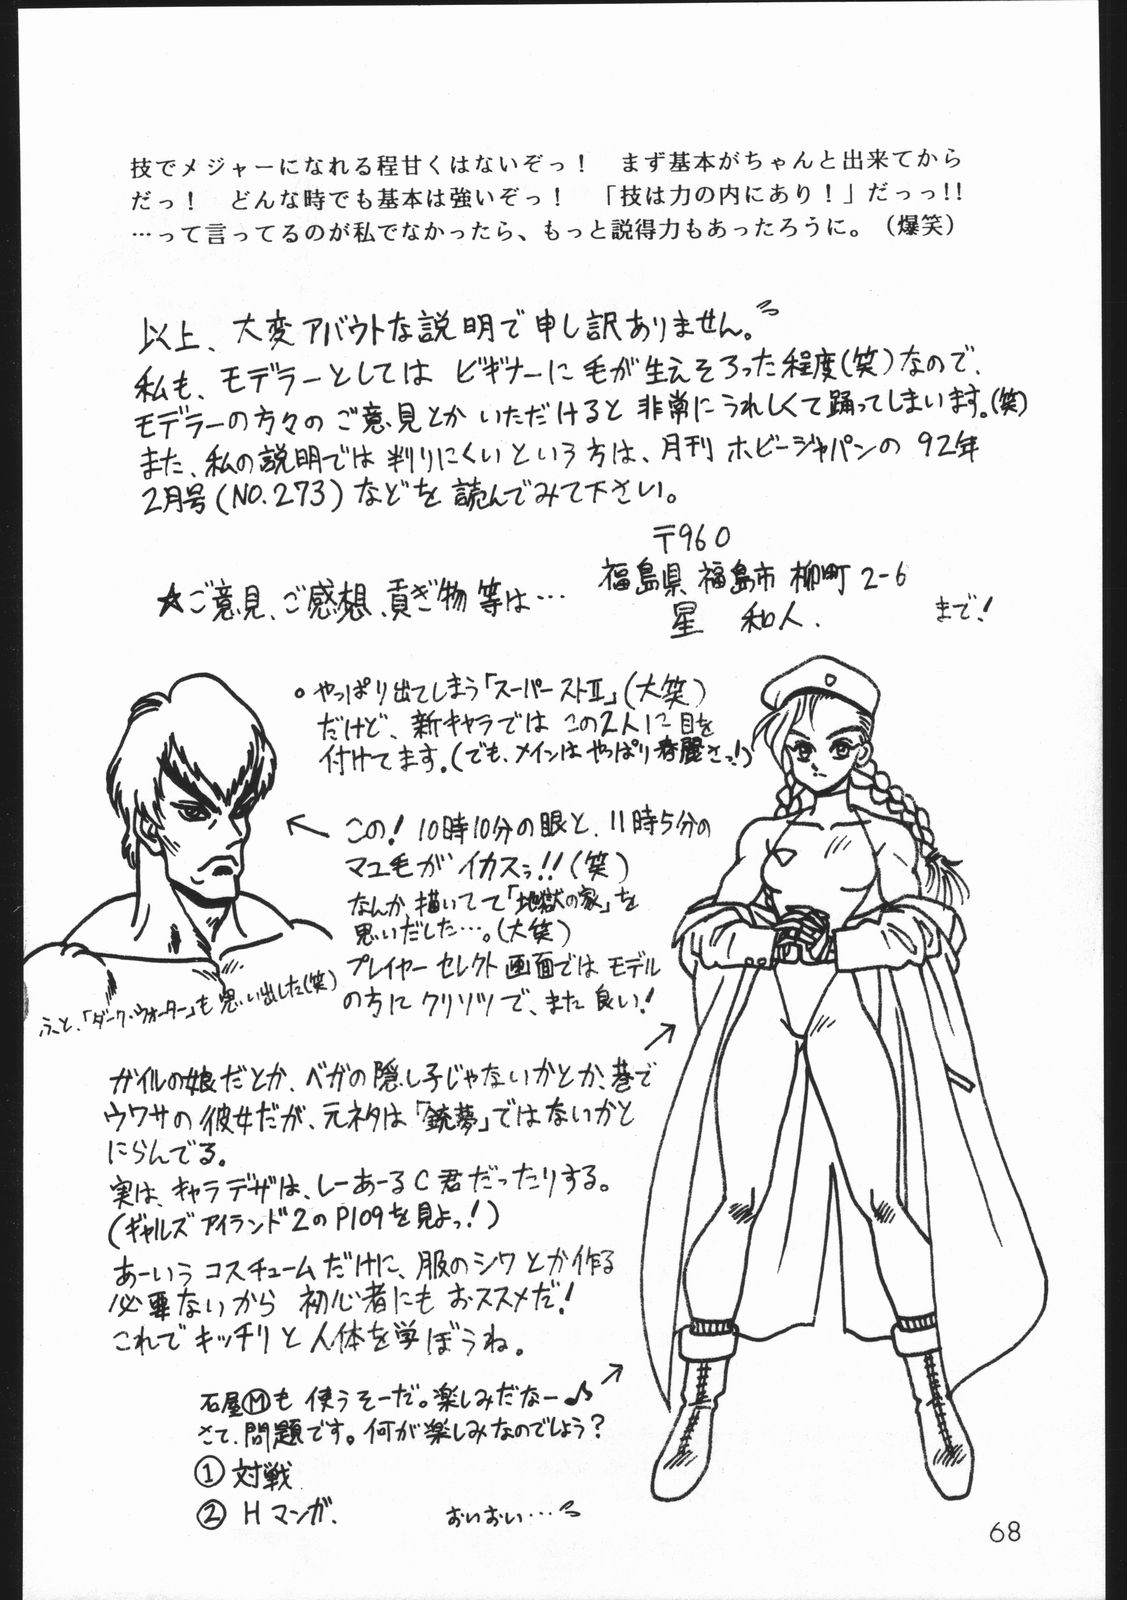 技でメジャーになれる程甘くはないぞっ！　まず基本がちゃんと出来てから
だっ！　どんな時でも基本は強いぞっ！　「技は力の内にあり！」だっっ!!
…って言ってるのが私でなかったら、もっと説得力もあったろうに。（爆笑）
以上、大変アバウトな説明で申し訳ありません。
私も、モデラーとしては ビギナーに毛が生えそろった程度(笑)なので、
モデラーの方々のご意見とかいただけると非常にうれしくて踊ってしまいます。(笑)
また、私の説明では判りにくいという方は、月刊ホビージャパンの92年
2月号(NO.273)などを読んでみて下さい。
〒960
☆ご意見、ご感想、貢ぎ物等は…
福島県福島市柳町2-6
星 和人.
まで!
○やっぱり出てしまう「スーパーストⅡ」(大笑)
だけど、新キャラではこの2人に目を
付けてます。(でも、メインはやっぱり春麗さっ!)
この! 10時10分の眼と、11時5分の
マユ毛がイカスぅ!!(笑)
なんか、描いてて「地獄の家」を
思いだした…。(大笑)
プレイヤーセレクト画面ではモデル
の方にクリソツで、また良い!
ふと、「ダーク・ウォーター」も思い出した(笑)
ガイルの娘だとか、ベガの隠し子じゃないかとか、巷で
ウワサの彼女だが、元ネタは「銃夢」ではないかと
にらんでる。
実は、キャラデザは、しーあーるC君だったりする。
(ギャルズアイランド2のP109を見よっ!)
あーいうコスチュームだけに、服のシワとか作る
必要ないから 初心者にもおススメだ!
これでキッチリと人体を学ぼうね。
石屋Ⓜも使うそーだ。楽しみだなー♪
さて、問題です。何が楽しみなのでしょう?
①対戦
②Hマンガ.
おいおい…
68